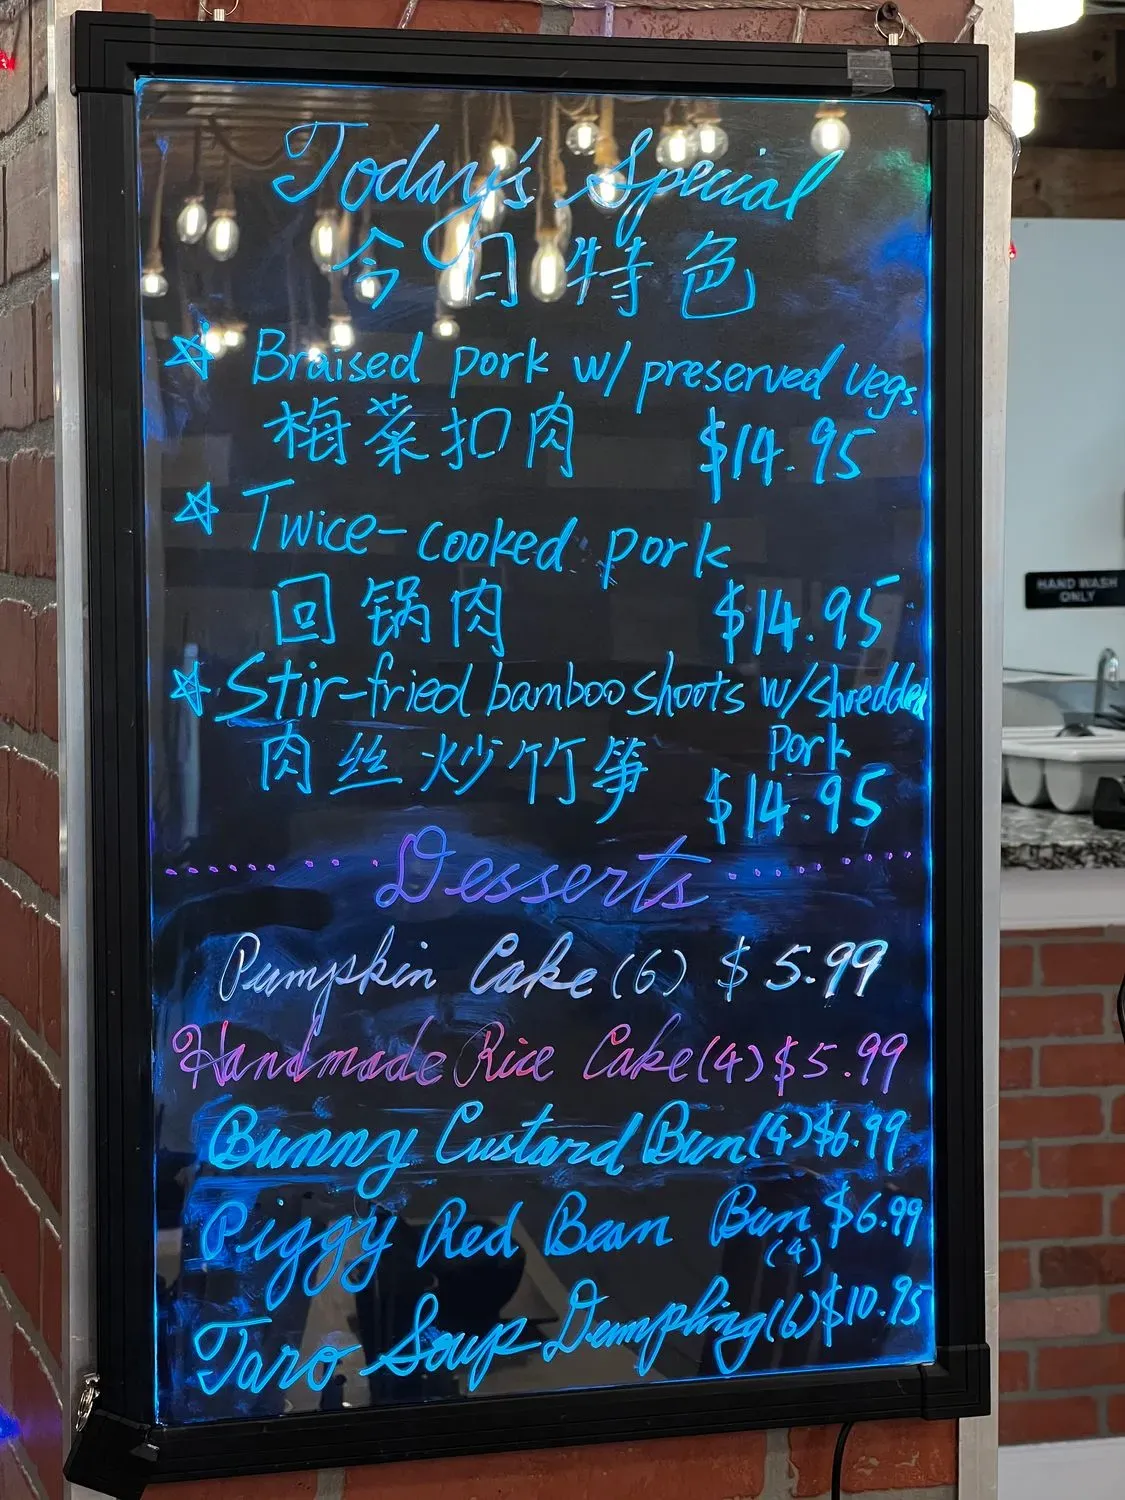 Today's Special
今日特色
☆ Braised pork w/ preserved vegs.
梅菜扣肉 $14.95
☆ Twice-cooked pork
回锅肉 $14.95
☆ Stir-fried bamboo shoots w/ shredded
pork
肉丝炒竹笋 $14.95
Desserts
Pumpkin Cake (6) $5.99
Handmade Rice Cake (4) $5.99
Bunny Custard Bun (4) $6.99
Piggy Red Bean Bun $6.99
(4)
Taro Soup Dumpling (6) $10.95
HAND WASH
ONLY